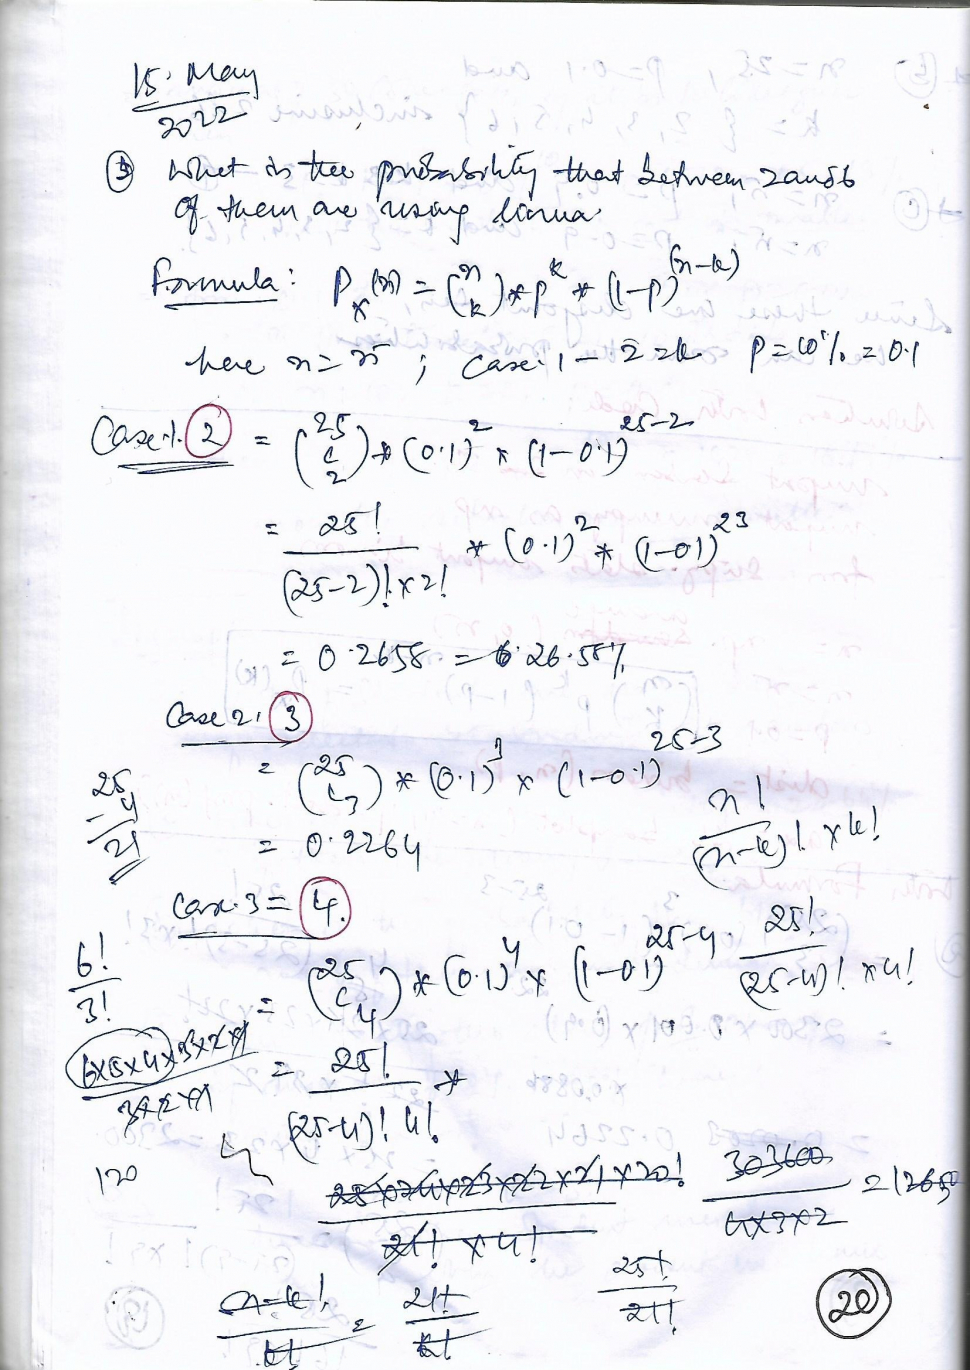 15. May
2022
③ What is the probability that between 2 and 6
of them are using
Formula: Pₓ(n) = (n k) * p^k * (1-p)^(n-k)
here n = 25 ; Case.1 - 2 = k. P = 10% = 0.1
Case.1. 2 = (25 C 2) * (0.1)^2 * (1-0.1)^25-2
= 25! / (25-2)! x 2! * (0.1)^2 * (1-01)^23
= 0.2658 = 26.58%
Case 2. 3
= (25 C 3) * (0.1)^3 x (1-0.1)^25-3
25 - 4 / 21
= 0.2264
n! / (n-k)! x k!
Case.3 = 4.
6! / 3!
= (25 C 4) * (0.1)^4 x (1-01)^25-4
25! / (25-4)! x 4!
6x5x4x3x2x1 / 3x2x1
= 25! / (25-4)! 4! *
120
25x24x23x22x21x20! / 21! x 4!
303600 / 4x3x2 = 12650
n-k! / k! = 21! / k!
25! / 21!
20